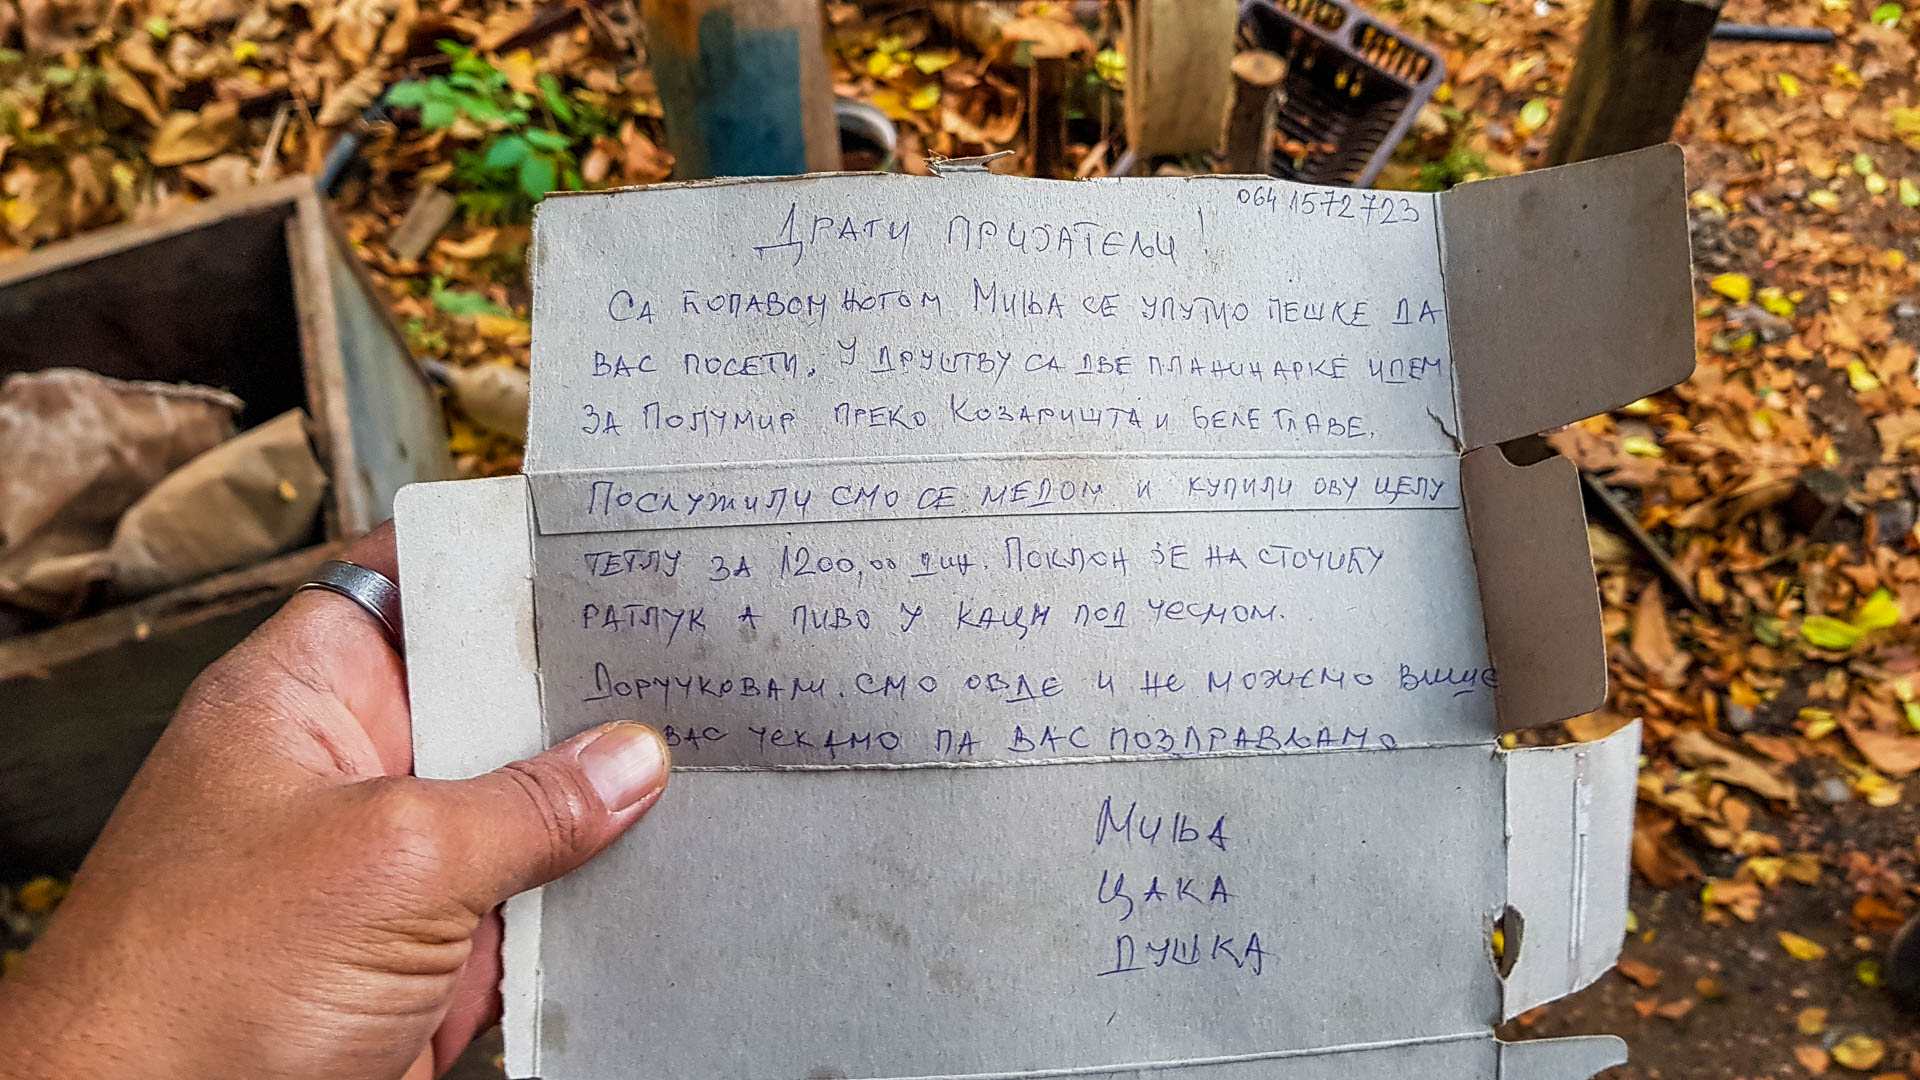 064 1572723
ДРАГИ ПРИЈАТЕЉИ!
СА ЋОПАВОМ НОГОМ МИЊА СЕ УПУТИО ПЕШКЕ ДА
ВАС ПОСЕТИ. У ДРУШТВУ СА ДВЕ ПЛАНИНАРКЕ ИДЕМ
ЗА ПОЛУМИР ПРЕКО КОЗАРИШТА И БЕЛЕ ГЛАВЕ.
ПОСЛУЖИЛИ СМО СЕ МЕДОМ И КУПИЛИ ОВУ ЦЕЛУ
ТЕГЛУ ЗА 1200,00 ДИН. ПОКЛОН ЈЕ НА СТОЧИЋУ
РАТЛУК А ПИВО У КАЦИ ПОД ЧЕСМОМ.
ДОРУЧКОВАЛИ СМО ОВДЕ И НЕ МОЖЕМО ВИШЕ
ВАС ЧЕКАМО ПА ВАС ПОЗДРАВЉАМО
МИЊА
ЦАКА
ДУШКА